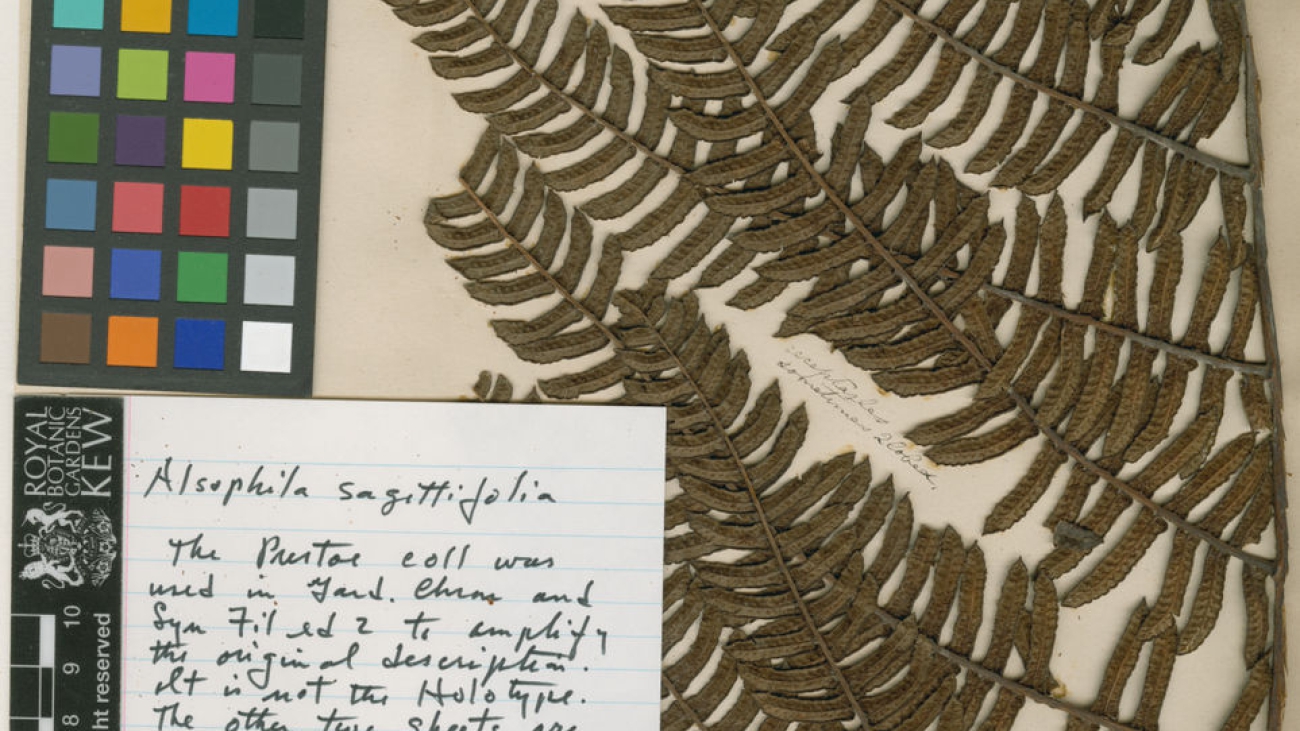 ROYAL
BOTANIC
GARDENS
KEW
10
9
8
ht reserved
Alsophila sagittifolia
The Prestoe coll was
used in Gard. Chron and
Syn Fil ed 2 to amplify
the original description.
It is not the Holotype.
The other two sheets are
receptacles
sometimes 2 lobed.